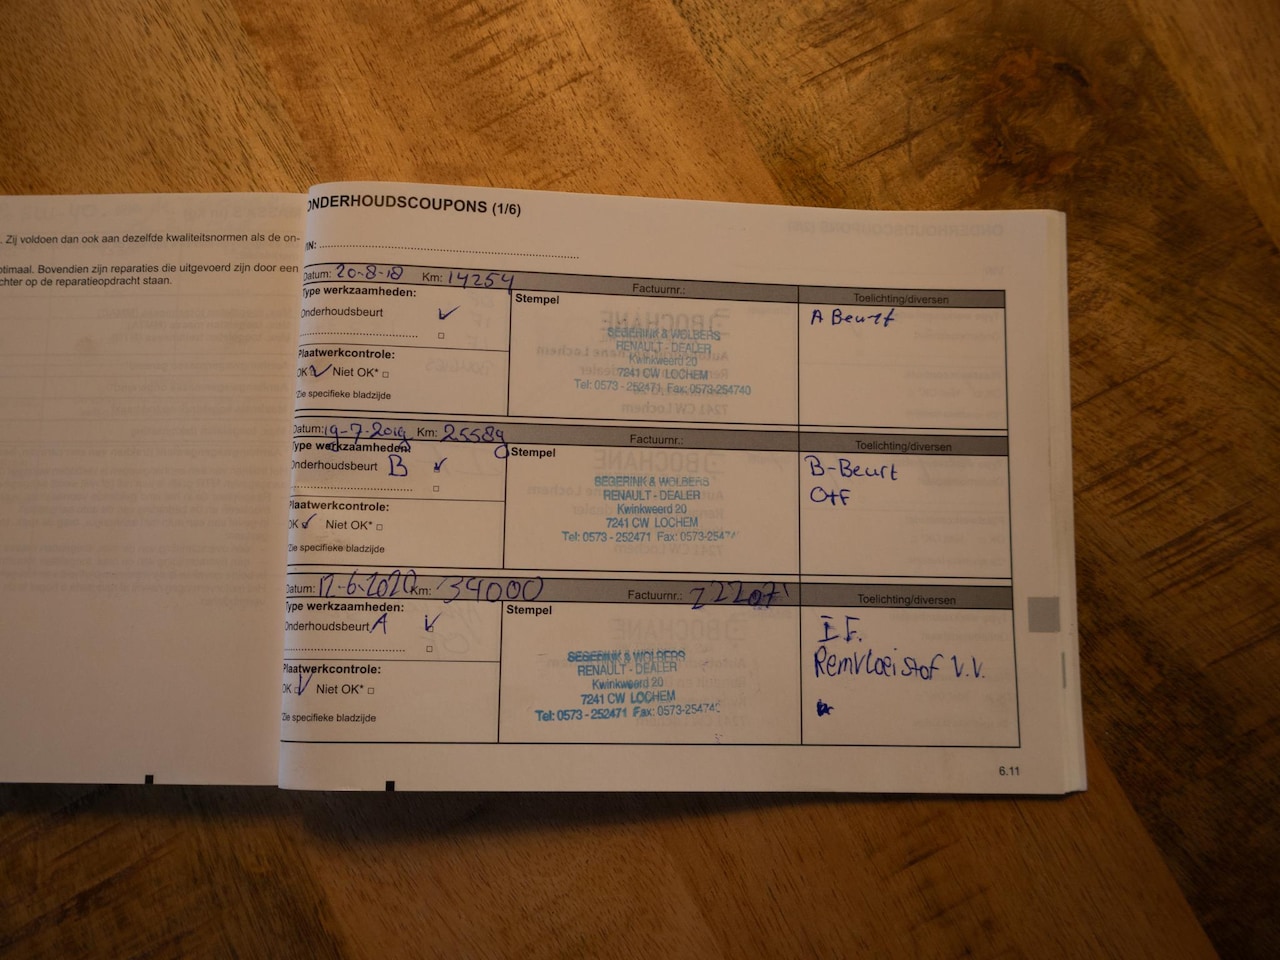 . Zij voldoen dan ook aan dezelfde kwaliteitsnormen als de on-
ptimaal. Bovendien zijn reparaties die uitgevoerd zijn door een
chter op de reparatieopdracht staan.
ONDERHOUDSCOUPONS (1/6)
IN:
Datum: 20-8-18 Km: 14254 Factuurnr.: Toelichting/diversen
Type werkzaamheden: Stempel
Onderhoudsbeurt A Beurt
Plaatwerkcontrole:
OK Niet OK*
*Zie specifieke bladzijde
SEGERINK & WOLBERS
RENAULT - DEALER
Kwinkweerd 20
7241 CW LOCHEM
Tel: 0573 - 252471 Fax: 0573-254740
Datum: 19-7-2019 Km: 25589 Factuurnr.: Toelichting/diversen
Type werkzaamheden: Stempel
Onderhoudsbeurt B B-Beurt
Plaatwerkcontrole:
OK Niet OK*
*Zie specifieke bladzijde
SEGERINK & WOLBERS
RENAULT - DEALER
Kwinkweerd 20
7241 CW LOCHEM
Tel: 0573 - 252471 Fax: 0573-2547
Datum: 12-6-2020 Km: 34000 Factuurnr.: 222071 Toelichting/diversen
Type werkzaamheden: Stempel
Onderhoudsbeurt A I.F.
Remvloeistof V.V.
Plaatwerkcontrole:
OK Niet OK*
*Zie specifieke bladzijde
SEGERINK & WOLBERS
RENAULT - DEALER
Kwinkweerd 20
7241 CW LOCHEM
Tel: 0573 - 252471 Fax: 0573-25474
6.11